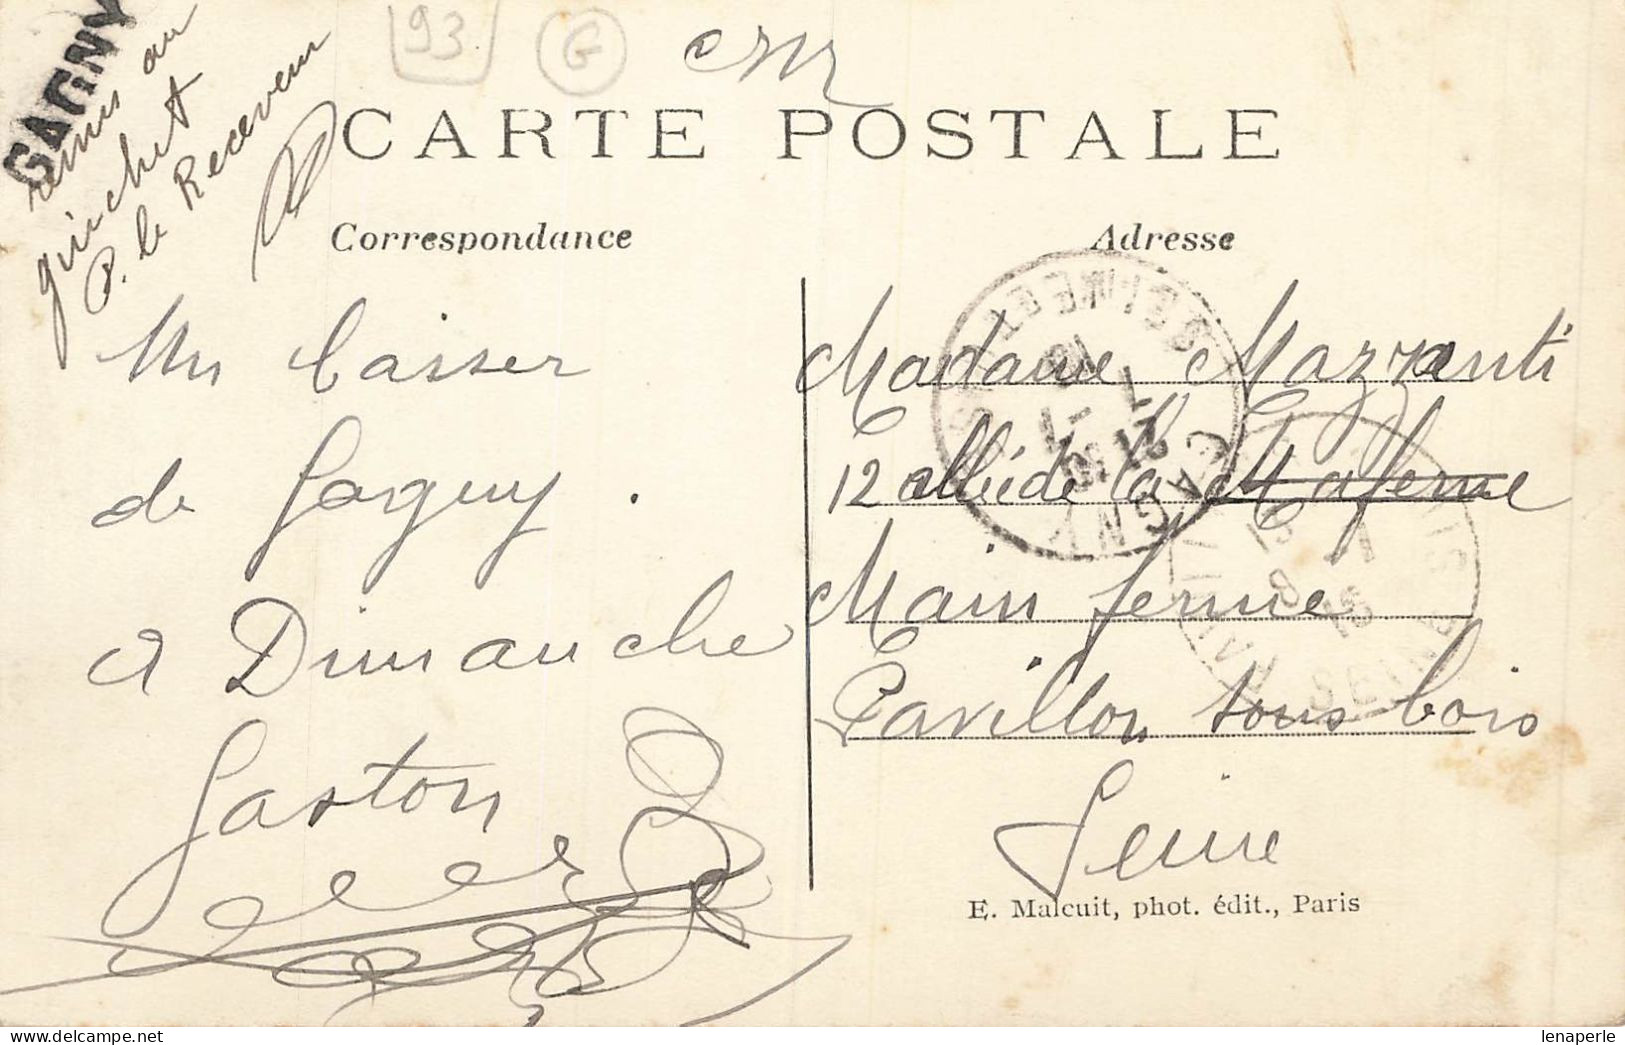 GAGNY
remis au
guichet
P. le Receveur
93
G
CARTE POSTALE
Correspondance
Adresse
Un baiser
de Gagny.
a Dimanche
Gaston
Madame Mazzanti
12 allée de la
Main ferme
Pavillon sous bois
Seine
E. Malcuit, phot. édit., Paris
GAGNY
lenaperle